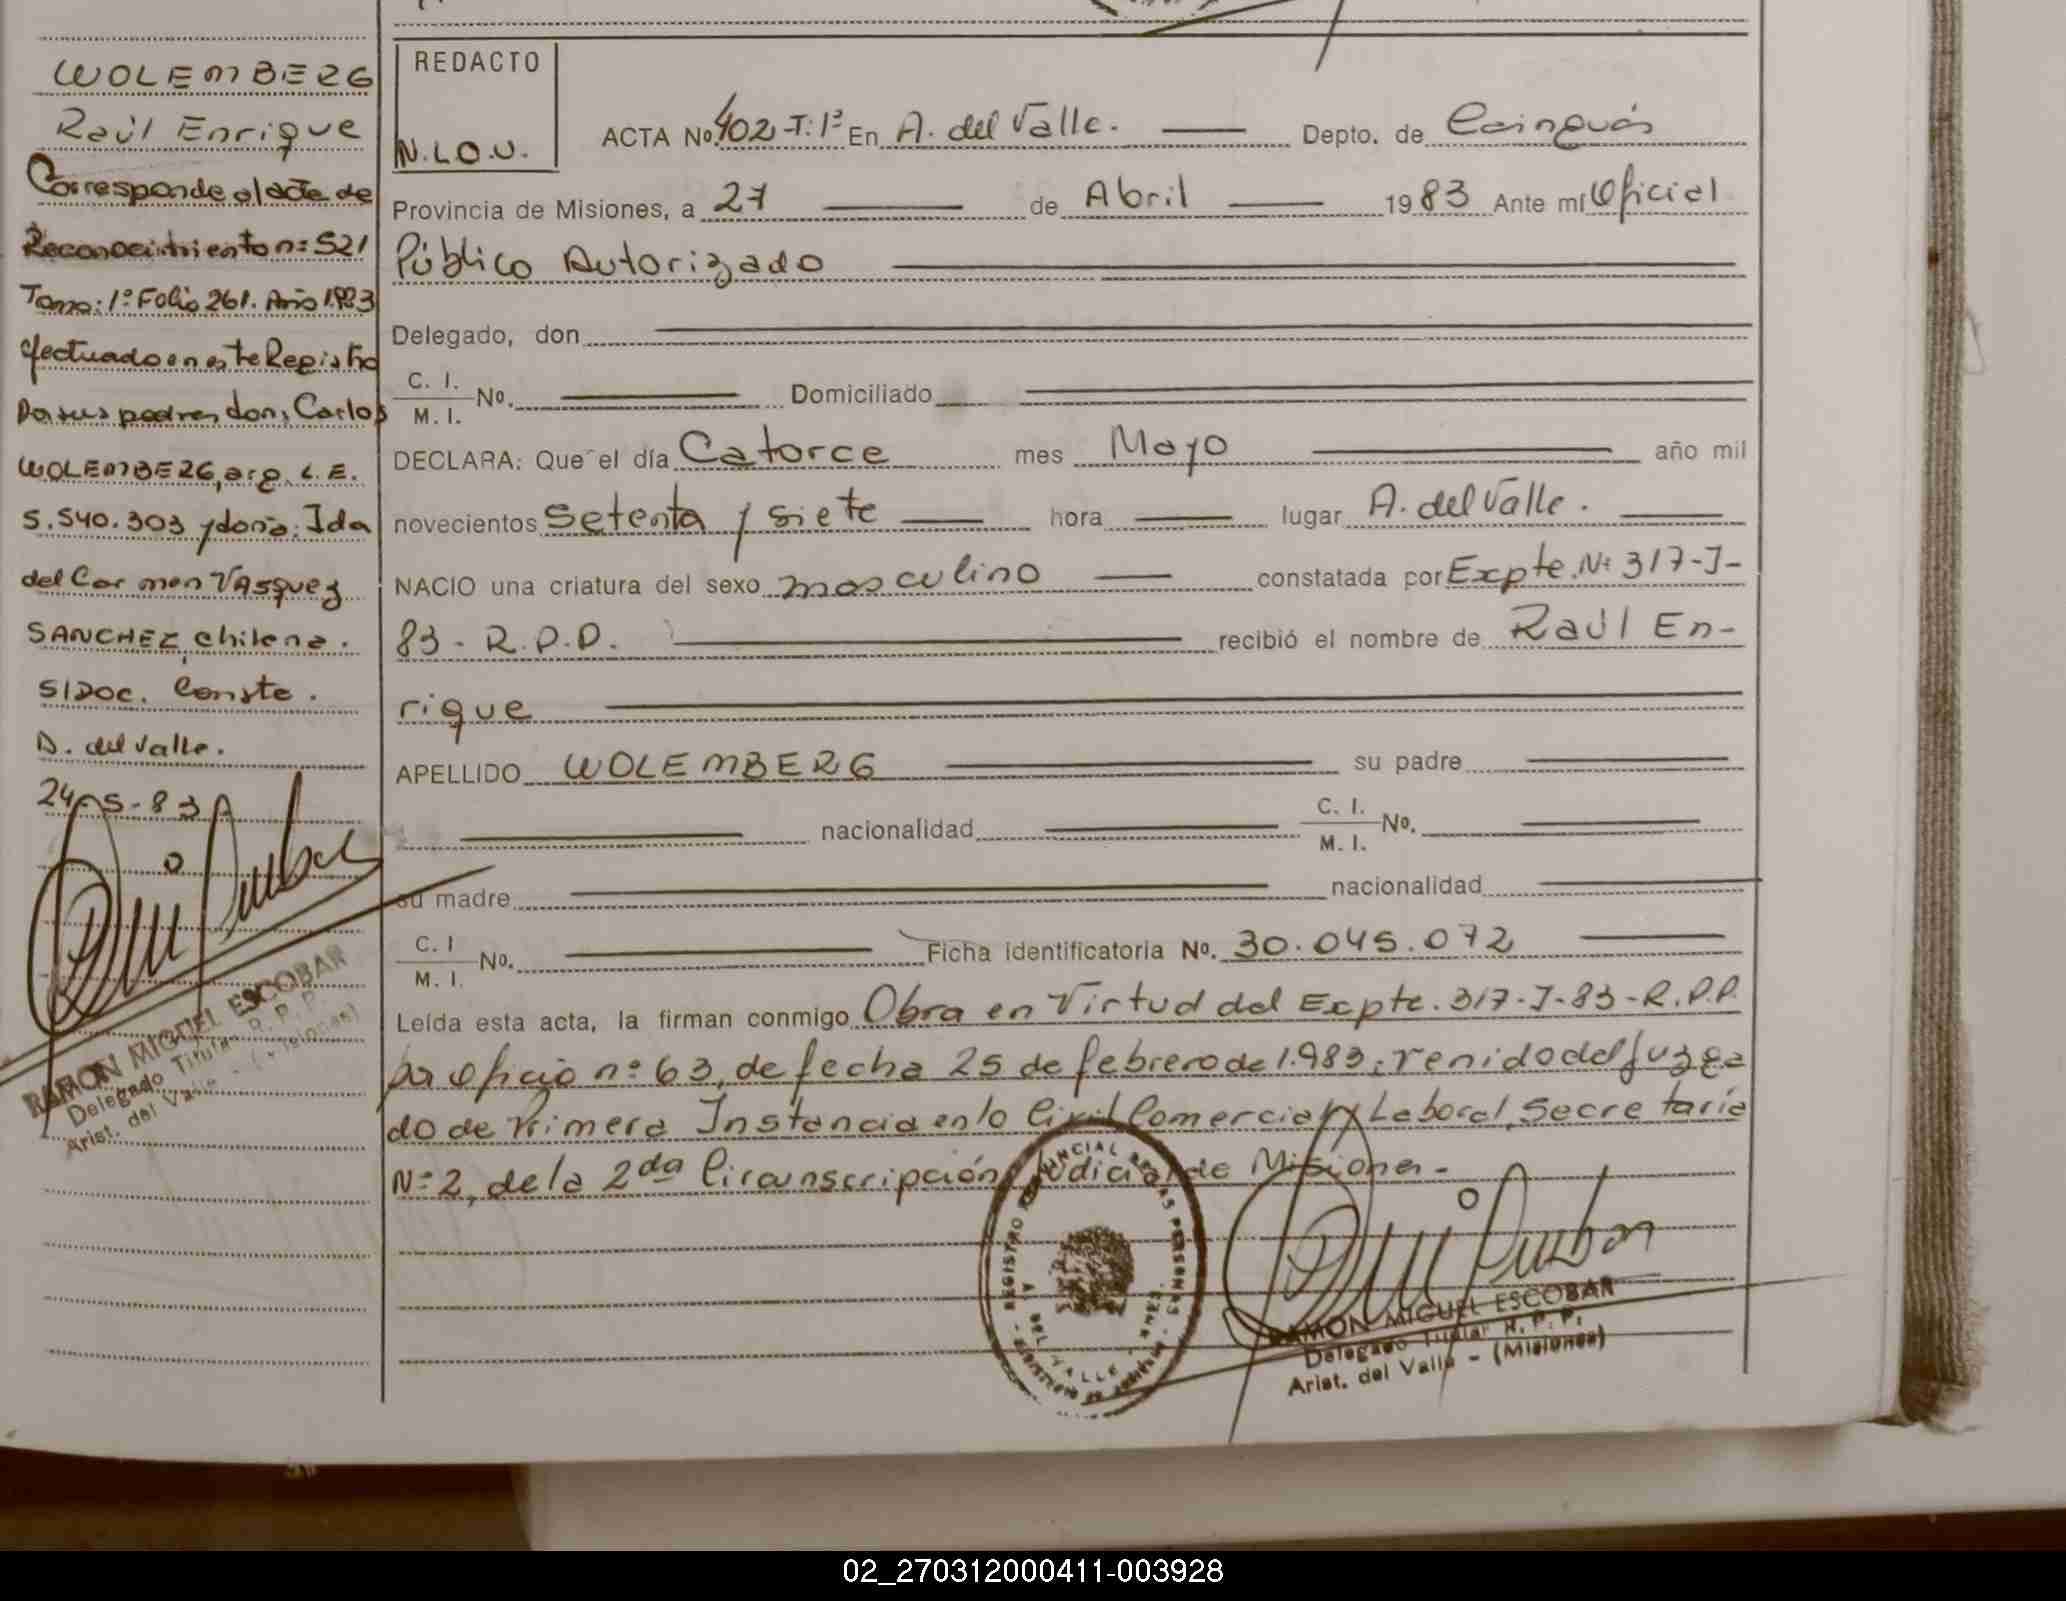 WOLEMBERG
Raúl Enrique
Corresponde al acta de
Reconocimiento nº 521
Tomo: 1º Folio 261. Año 1983
efectuado en este Registro
Por sus padres, don, Carlos
WOLEMBERG, arg. L.E.
5.540.303 y doña: Ida
del Carmen VASquez
SANCHEZ, chilena.
S/DOC. Conste.
A. del Valle.
24-5-83
RAMON MIGUEL ESCOBAR
Delegado Titular R. P. P.
Arist. del Valle - (Misiones)
REDACTO
N.L.O.U.
ACTA No. 402-T:1º En A. del Valle. Depto. de Cainguás
Provincia de Misiones, a 27 de Abril 1983 Ante mí Oficial
Público Autorizado
Delegado, don
C. I.
M. I. No. Domiciliado
DECLARA: Que el día Catorce mes Mayo año mil
novecientos setenta y siete hora lugar A. del Valle.
NACIO una criatura del sexo masculino constatada por Expte. Nº 317-J-
83 - R.P.P. recibió el nombre de Raúl En-
rique
APELLIDO WOLEMBERG su padre
nacionalidad C. I.
M. I. No.
su madre nacionalidad
C. I
M. I. No. Ficha identificatoria No. 30.045.072
Leída esta acta, la firman conmigo Obra en Virtud del Expte. 317-J-83-R.P.P.
por oficio nº 63, de fecha 25 de febrero de 1.983; venido del Juzga
do de Primera Instancia en lo Civil Comercial y Laboral, Secretaría
Nº 2, de la 2da Circunscripción Judicial de Misiones.-
REGISTRO PROVINCIAL DE LAS PERSONAS
A. DEL VALLE
RAMON MIGUEL ESCOBAR
Delegado Titular R. P. P.
Arist. del Valle - (Misiones)
02_270312000411-003928